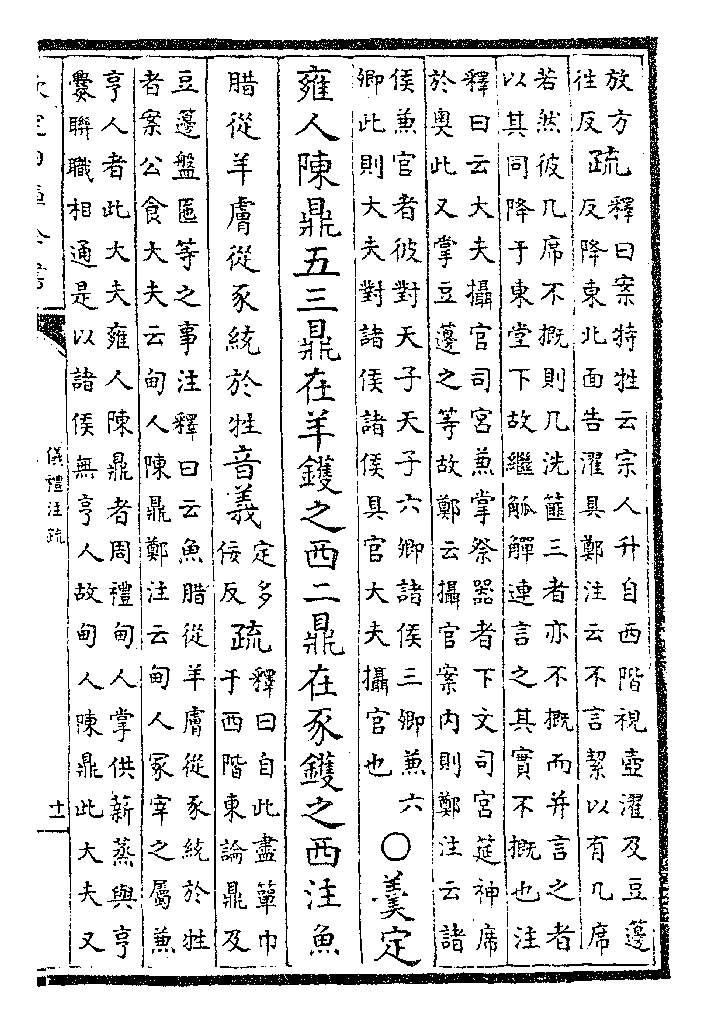 放方
往反
疏
釋曰案特牲云宗人升自西階視壺濯及豆籩
反降東北面告濯具鄭注云不言絜以有几席
若然彼几席不概則几洗篚三者亦不概而并言之者
以其同降于東堂下故繼觚觶連言之其實不概也注
釋曰云大夫攝官司宮兼掌祭器者下文司宮筵神席
於奧此又掌豆籩之等故鄭云攝官案内則鄭注云諸
侯兼官者彼對天子天子六卿諸侯三卿兼六
卿此則大夫對諸侯諸侯具官大夫攝官也
○羹定
雍人陳鼎五三鼎在羊鑊之西二鼎在豕鑊之西注魚
腊從羊膚從豕統於牲音義
定多
佞反
疏
釋曰自此盡簞巾
于西階東論鼎及
豆籩盤匜等之事注釋曰云魚腊從羊膚從豕統於牲
者案公食大夫云甸人陳鼎鄭注云甸人冢宰之屬兼
亨人者此大夫雍人陳鼎者周禮甸人掌供薪蒸與亨
爨聯職相通是以諸侯無亨人故甸人陳鼎此大夫又
儀禮注疏
十一